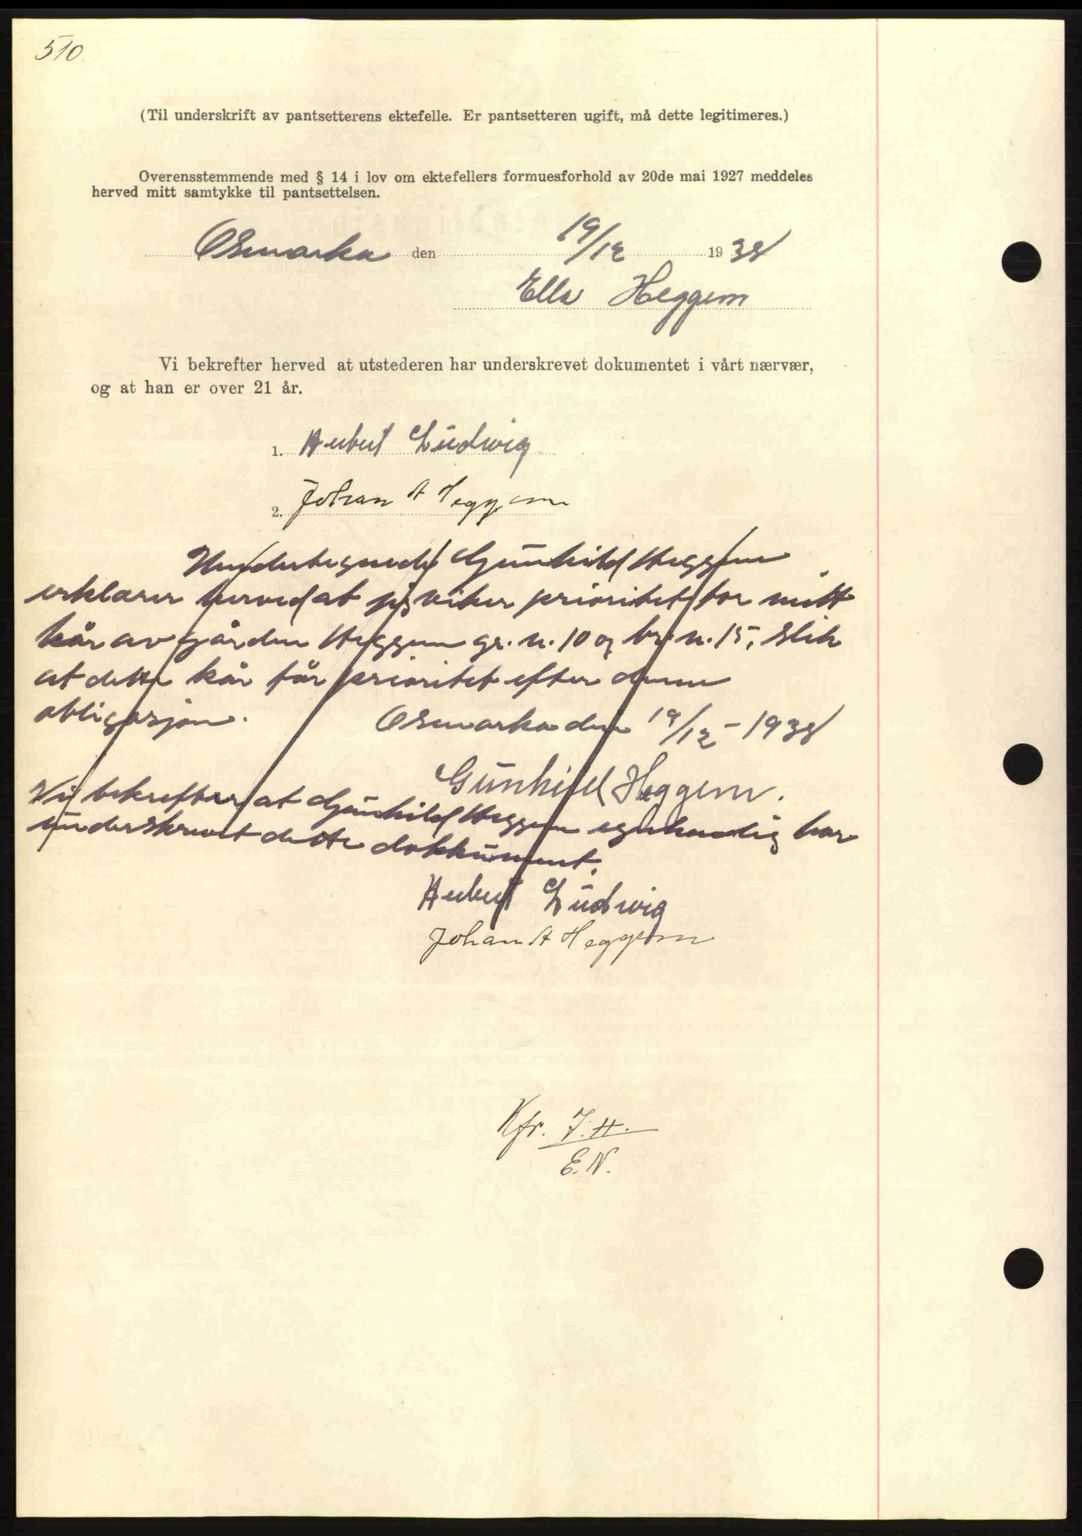 510.
(Til underskrift av pantsetterens ektefelle. Er pantsetteren ugift, må dette legitimeres.)
Overensstemmende med § 14 i lov om ektefellers formuesforhold av 20de mai 1927 meddeles
herved mitt samtykke til pantsettelsen.
Osmarka den 19/12 1938
Ella Heggem
Vi bekrefter herved at utstederen har underskrevet dokumentet i vårt nærvær,
og at han er over 21 år.
1. Hubert Ludwig
2. Johan A Heggem
Undertegnede Gunhild Heggem
erklærer herved at jeg viker prioritet for mitt
kår av gården Heggem gr. n. 10 og br. n. 15, slik
at dette kår får prioritet efter denne
obligasjon. Osmarka den 19/12 - 1938
Gunhild Heggem.
Vi bekrefter at Gunhild Heggem egenhendig har
underskrevet dette dokkument.
Hubert Ludwig
Johan A Heggem
Kfr. J. H.
E. N.